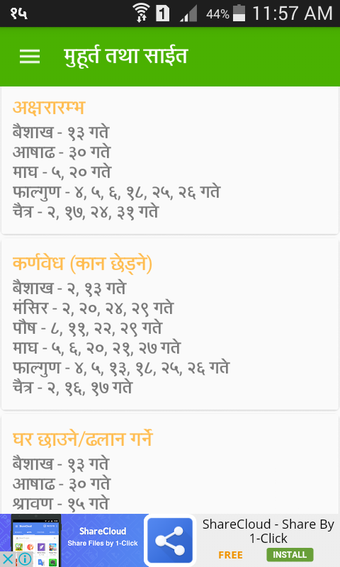 १५
1
44%
11:57 AM
मुहूर्त तथा साईत
अक्षरारम्भ
बैशाख - १३ गते
आषाढ - ३० गते
माघ - ५, २० गते
फाल्गुण - ४, ५, ६, १८, २५, २६ गते
चैत्र - २, १७, २४, ३१ गते
कर्णवेध (कान छेड्ने)
बैशाख - २, १३ गते
मंसिर - २, २०, २४, २९ गते
पौष - ८, ११, २२, २९ गते
माघ - ५, ६, २०, २१, २७ गते
फाल्गुण - ४, ५, १३, १८, २५, २६ गते
चैत्र - २, १६, १७ गते
घर छाउने/ढलान गर्ने
बैशाख - १३ गते
आषाढ - ३० गते
श्रावण - १५ गते
ShareCloud
Share Files by 1-Click
ShareCloud - Share By
1-Click
FREE
INSTALL